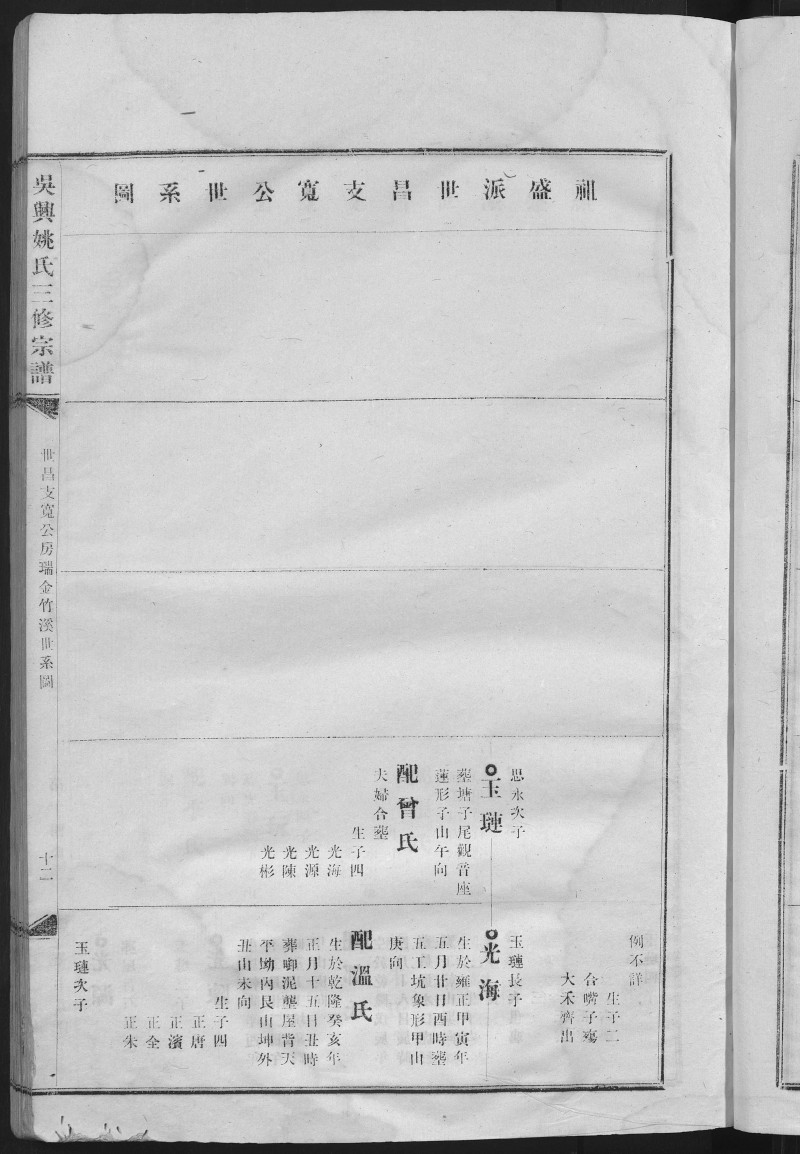 祖盛派世昌支寬公世系圖
思永次子
玉璉
塟塘子尾觀音座
蓮形子山午向
配曾氏
夫婦合塟
生子四
光海
光源
光陳
光彬
例不詳
生子二
合嘴子殤
大禾齊出
玉璉長子
光海
生於雍正甲寅年
五月廿日酉時塟
五工坑象形甲山
庚向
配溫氏
生於乾隆癸亥年
正月十五日丑時
葬啣泥壟屋背天
平坳內艮山坤外
丑山未向
生子四
正唐
正濱
正全
正朱
玉璉次子
吳興姚氏三修宗譜
世昌支寬公房瑞金竹溪世系圖
十二